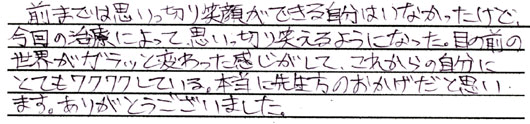 前までは思いっ切り笑顔ができる自分はいなかったけど、
今回の治療によって、思いっ切り笑えるようになった。目の前の
世界がガラッと変わった感じがして、これからの自分に
とてもワクワクしている。本当に先生方のおかげだと思い
ます。ありがとうございました。